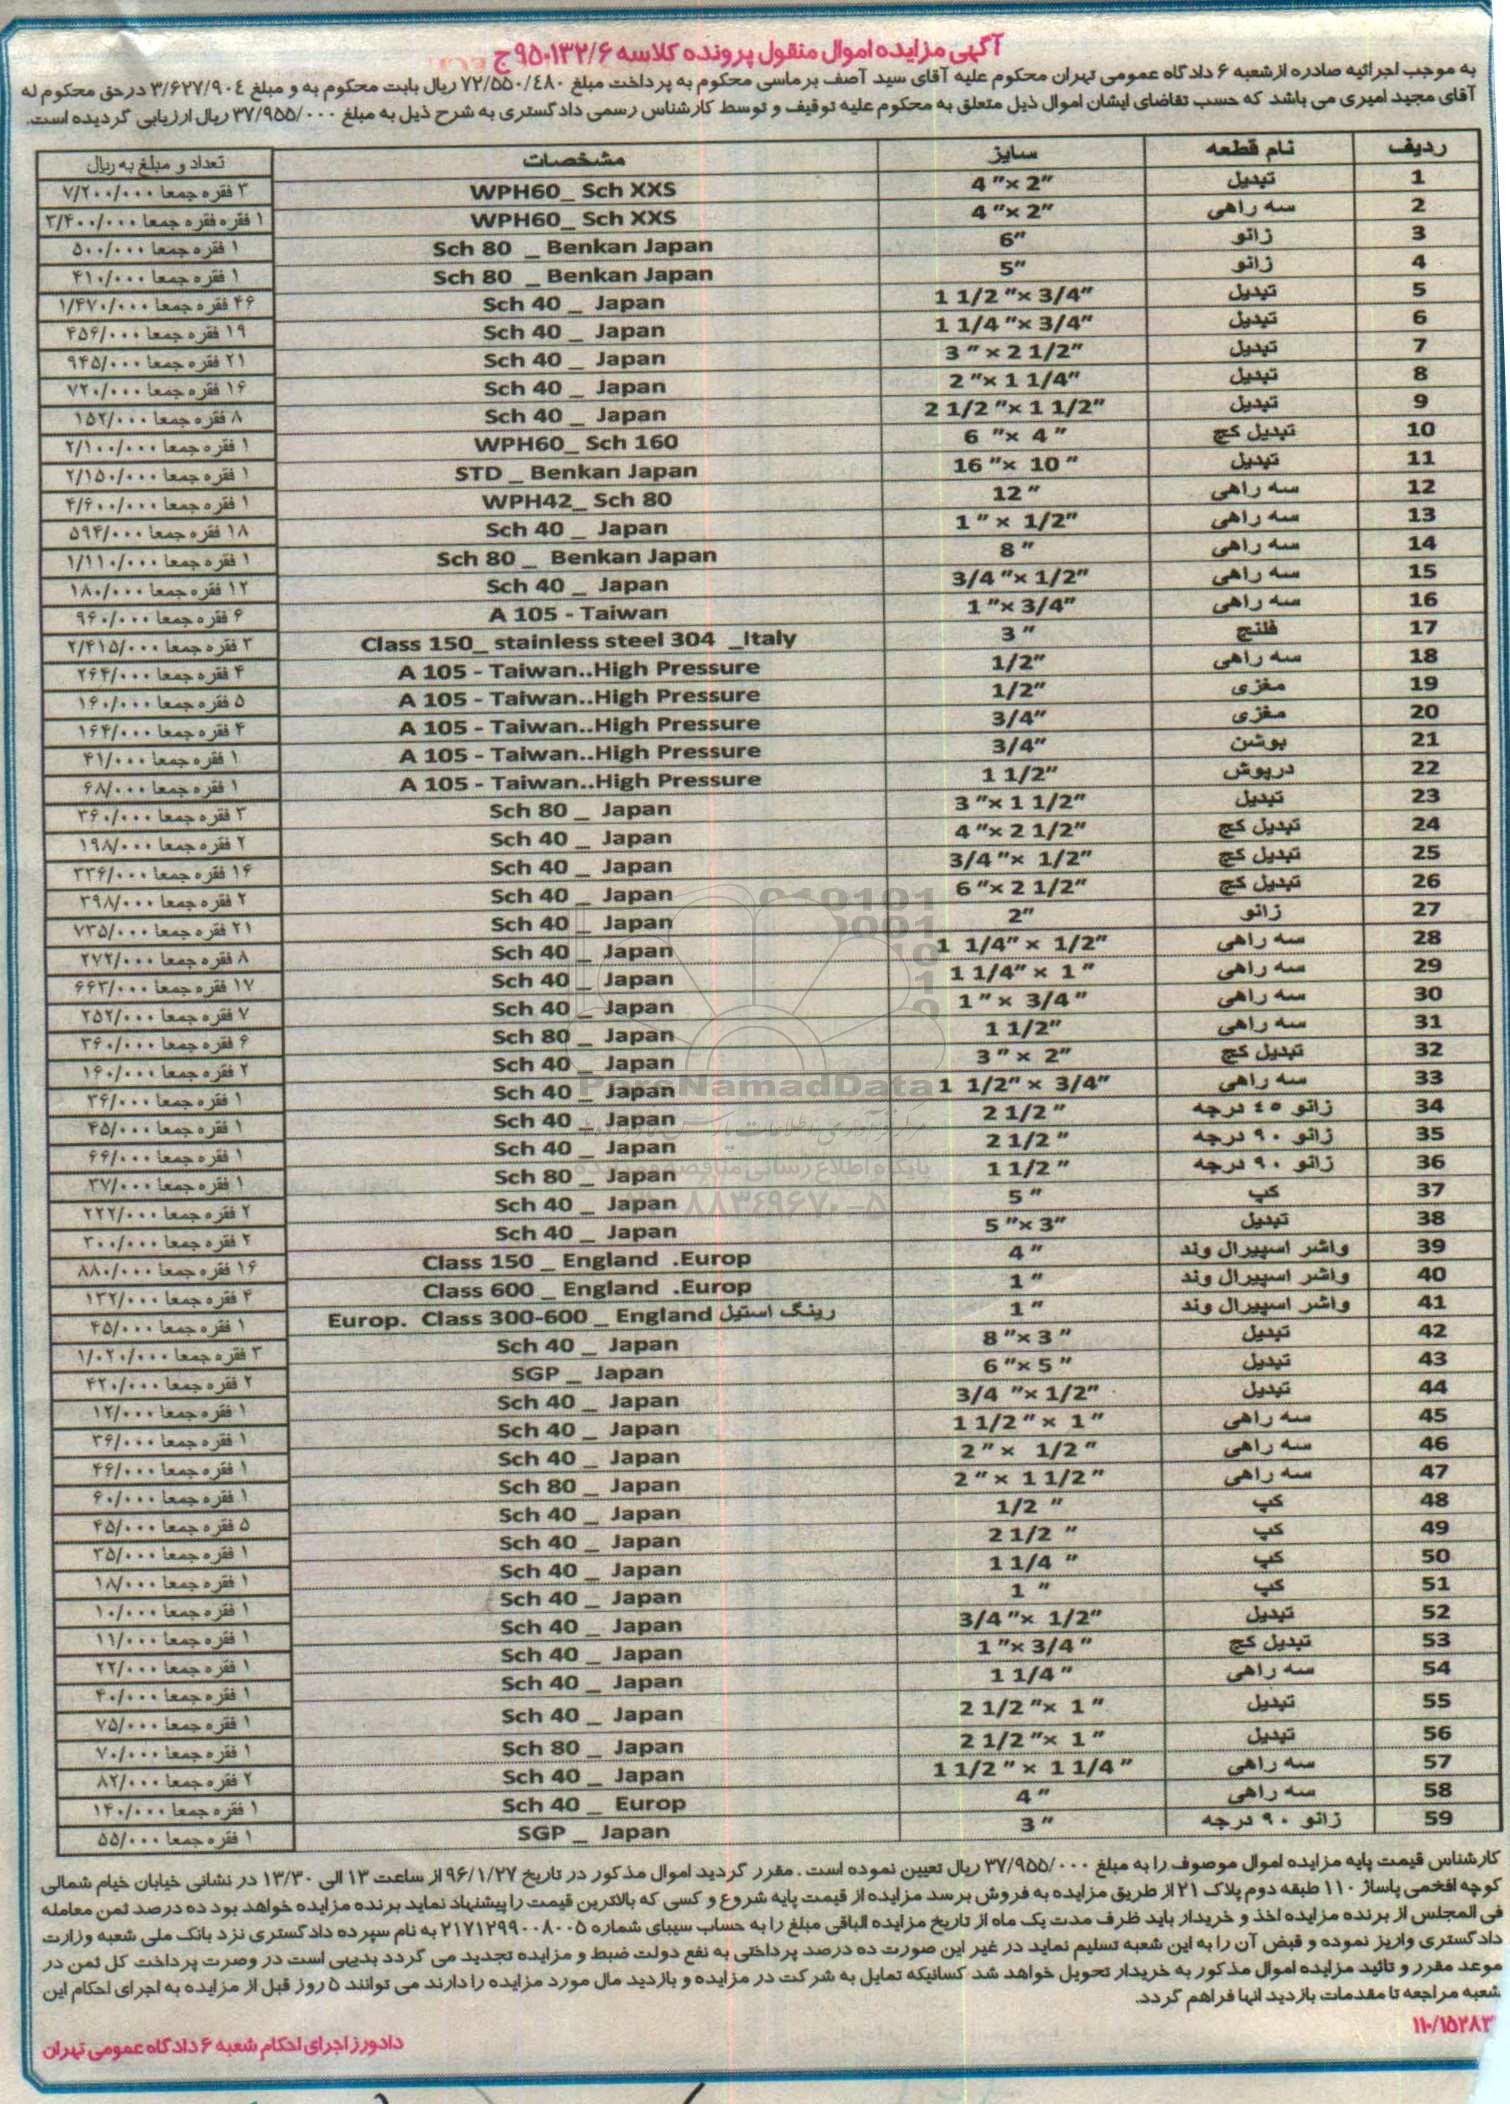 آگهی مزایده اموال منقول پرونده کلاسه ۹۵۰۱۳۲/۶ ج
به موجب اجرائیه صادره از شعبه ۶ دادگاه عمومی تهران محکوم علیه آقای سید آصف برماسی محکوم به پرداخت مبلغ ۷۲/۵۵۰/۴۸۰ ریال بابت محکوم به و مبلغ ۳/۶۲۷/۹۰۴ درحق محکوم له
آقای مجید امیری می باشد که حسب تقاضای ایشان اموال ذیل متعلق به محکوم علیه توقیف و توسط کارشناس رسمی دادگستری به شرح ذیل به مبلغ ۳۷/۹۵۵/۰۰۰ ریال ارزیابی گردیده است.
ردیف نام قطعه سایز مشخصات تعداد و مبلغ به ریال
1 تبدیل 4 "× 2" WPH60_ Sch XXS ۳ فقره جمعا ۷/۲۰۰/۰۰۰
2 سه راهی 4 "× 2" WPH60_ Sch XXS ۱ فقره فقره جمعا ۳/۴۰۰/۰۰۰
3 زانو 6" Sch 80 _ Benkan Japan ۱ فقره جمعا ۵۰۰/۰۰۰
4 زانو 5" Sch 80 _ Benkan Japan ۱ فقره جمعا ۴۱۰/۰۰۰
5 تبدیل 1 1/2 "× 3/4" Sch 40 _ Japan ۴۶ فقره جمعا ۱/۴۷۰/۰۰۰
6 تبدیل 1 1/4 "× 3/4" Sch 40 _ Japan ۱۹ فقره جمعا ۴۵۶/۰۰۰
7 تبدیل 3 " × 2 1/2" Sch 40 _ Japan ۲۱ فقره جمعا ۹۴۵/۰۰۰
8 تبدیل 2 "× 1 1/4" Sch 40 _ Japan ۱۶ فقره جمعا ۷۲۰/۰۰۰
9 تبدیل 2 1/2 "× 1 1/2" Sch 40 _ Japan ۸ فقره جمعا ۱۵۲/۰۰۰
10 تبدیل کج 6 "× 4 " WPH60_ Sch 160 ۱ فقره جمعا ۲/۱۰۰/۰۰۰
11 تبدیل 16 "× 10 " STD _ Benkan Japan ۱ فقره جمعا ۲/۱۵۰/۰۰۰
12 سه راهی 12 " WPH42_ Sch 80 ۱ فقره جمعا ۴/۶۰۰/۰۰۰
13 سه راهی 1 " × 1/2" Sch 40 _ Japan ۱۸ فقره جمعا ۵۹۴/۰۰۰
14 سه راهی 8 " Sch 80 _ Benkan Japan ۱ فقره جمعا ۱/۱۱۰/۰۰۰
15 سه راهی 3/4 "× 1/2" Sch 40 _ Japan ۱۲ فقره جمعا ۱۸۰/۰۰۰
16 سه راهی 1 "× 3/4" A 105 - Taiwan ۶ فقره جمعا ۹۶۰/۰۰۰
17 فلنج 3 " Class 150_ stainless steel 304 _Italy ۳ فقره جمعا ۲/۴۱۵/۰۰۰
18 سه راهی 1/2" A 105 - Taiwan..High Pressure ۴ فقره جمعا ۲۶۴/۰۰۰
19 مغزی 1/2" A 105 - Taiwan..High Pressure ۵ فقره جمعا ۱۶۰/۰۰۰
20 مغزی 3/4" A 105 - Taiwan..High Pressure ۴ فقره جمعا ۱۶۴/۰۰۰
21 بوشن 3/4" A 105 - Taiwan..High Pressure ۱ فقره جمعا ۴۱/۰۰۰
22 درپوش 1 1/2" A 105 - Taiwan..High Pressure ۱ فقره جمعا ۶۸/۰۰۰
23 تبدیل 3 "× 1 1/2" Sch 80 _ Japan ۳ فقره جمعا ۳۶۰/۰۰۰
24 تبدیل کج 4 "× 2 1/2" Sch 40 _ Japan ۲ فقره جمعا ۱۹۸/۰۰۰
25 تبدیل کج 3/4 "× 1/2" Sch 40 _ Japan ۱۶ فقره جمعا ۳۳۶/۰۰۰
26 تبدیل کج 6 "× 2 1/2" Sch 40 _ Japan ۲ فقره جمعا ۳۹۸/۰۰۰
27 زانو 2" Sch 40 _ Japan ۲۱ فقره جمعا ۷۳۵/۰۰۰
28 سه راهی 1 1/4" × 1/2" Sch 40 _ Japan ۸ فقره جمعا ۲۷۲/۰۰۰
29 سه راهی 1 1/4" × 1 " Sch 40 _ Japan ۱۷ فقره جمعا ۶۶۳/۰۰۰
30 سه راهی 1 " × 3/4" Sch 40 _ Japan ۷ فقره جمعا ۲۵۲/۰۰۰
31 سه راهی 1 1/2" Sch 80 _ Japan ۶ فقره جمعا ۳۶۰/۰۰۰
32 تبدیل کج 3 " × 2" Sch 40 _ Japan ۲ فقره جمعا ۱۶۰/۰۰۰
33 سه راهی 1 1/2" × 3/4" Sch 40 _ Japan ۱ فقره جمعا ۳۶/۰۰۰
34 زانو ۴۵ درجه 2 1/2 " Sch 40 _ Japan ۱ فقره جمعا ۴۵/۰۰۰
35 زانو ۹۰ درجه 2 1/2 " Sch 40 _ Japan ۱ فقره جمعا ۶۶/۰۰۰
36 زانو ۹۰ درجه 1 1/2 " Sch 80 _ Japan ۱ فقره جمعا ۳۷/۰۰۰
37 کپ 5 " Sch 40 _ Japan ۲ فقره جمعا ۲۲۲/۰۰۰
38 تبدیل 5 "× 3" Sch 40 _ Japan ۲ فقره جمعا ۳۰۰/۰۰۰
39 واشر اسپیرال وند 4 " Class 150 _ England .Europ ۱۶ فقره جمعا ۸۸۰/۰۰۰
40 واشر اسپیرال وند 1 " Class 600 _ England .Europ ۴ فقره جمعا ۱۳۲/۰۰۰
41 واشر اسپیرال وند 1 " رینگ استیل Europ. Class 300-600 _ England ۱ فقره جمعا ۴۵/۰۰۰
42 تبدیل 8 "× 3 " Sch 40 _ Japan ۳ فقره جمعا ۱/۰۲۰/۰۰۰
43 تبدیل 6 "× 5 " SGP _ Japan ۲ فقره جمعا ۴۲۰/۰۰۰
44 تبدیل 3/4 "× 1/2" Sch 40 _ Japan ۱ فقره جمعا ۱۲/۰۰۰
45 سه راهی 1 1/2 " × 1 " Sch 40 _ Japan ۱ فقره جمعا ۳۶/۰۰۰
46 سه راهی 2 " × 1/2 " Sch 40 _ Japan ۱ فقره جمعا ۴۶/۰۰۰
47 سه راهی 2 " × 1 1/2 " Sch 80 _ Japan ۱ فقره جمعا ۶۰/۰۰۰
48 کپ 1/2 " Sch 40 _ Japan ۵ فقره جمعا ۴۵/۰۰۰
49 کپ 2 1/2 " Sch 40 _ Japan ۱ فقره جمعا ۳۵/۰۰۰
50 کپ 1 1/4 " Sch 40 _ Japan ۱ فقره جمعا ۱۸/۰۰۰
51 کپ 1 " Sch 40 _ Japan ۱ فقره جمعا ۱۰/۰۰۰
52 تبدیل 3/4 "× 1/2" Sch 40 _ Japan ۱ فقره جمعا ۱۱/۰۰۰
53 تبدیل کج 1 "× 3/4 " Sch 40 _ Japan ۱ فقره جمعا ۲۲/۰۰۰
54 سه راهی 1 1/4 " Sch 40 _ Japan ۱ فقره جمعا ۴۰/۰۰۰
55 تبدیل 2 1/2 "× 1 " Sch 40 _ Japan ۱ فقره جمعا ۷۵/۰۰۰
56 تبدیل 2 1/2 "× 1 " Sch 80 _ Japan ۱ فقره جمعا ۷۰/۰۰۰
57 سه راهی 1 1/2 " × 1 1/4 " Sch 40 _ Japan ۲ فقره جمعا ۸۲/۰۰۰
58 سه راهی 4 " Sch 40 _ Europ ۱ فقره جمعا ۱۴۰/۰۰۰
59 زانو ۹۰ درجه 3 " SGP _ Japan ۱ فقره جمعا ۵۵/۰۰۰
کارشناس قیمت پایه مزایده اموال موصوف را به مبلغ ۳۷/۹۵۵/۰۰۰ ریال تعیین نموده است . مقرر گردید اموال مذکور در تاریخ ۹۶/۱/۲۷ از ساعت ۱۳ الی ۱۳/۳۰ در نشانی خیابان خیام شمالی
کوچه افخمی پاساژ ۱۱۰ طبقه دوم پلاک ۲۱ از طریق مزایده به فروش برسد مزایده از قیمت پایه شروع و کسی که بالاترین قیمت را پیشنهاد نماید برنده مزایده خواهد بود ده درصد ثمن معامله
فی المجلس از برنده مزایده اخذ و خریدار باید ظرف مدت یک ماه از تاریخ مزایده الباقی مبلغ را به حساب سیبای شماره ۲۱۷۱۲۹۹۰۰۸۰۰۵ به نام سپرده دادگستری نزد بانک ملی شعبه وزارت
دادگستری واریز نموده و قبض آن را به این شعبه تسلیم نماید در غیر این صورت ده درصد پرداختی به نفع دولت ضبط و مزایده تجدید می گردد بدیهی است در وصرت پرداخت کل ثمن در
موعد مقرر و تائید مزایده اموال مذکور به خریدار تحویل خواهد شد کسانیکه تمایل به شرکت در مزایده و بازدید مال مورد مزایده را دارند می توانند ۵ روز قبل از مزایده به اجرای احکام این
شعبه مراجعه تا مقدمات بازدید انها فراهم گردد.
۱۱۰/۱۵۲۸۳
دادورز اجرای احکام شعبه ۶ دادگاه عمومی تهران
ParsNamadData
پایگاه اطلاع رسانی
۸۸۳۴۹۶۷۰-۵